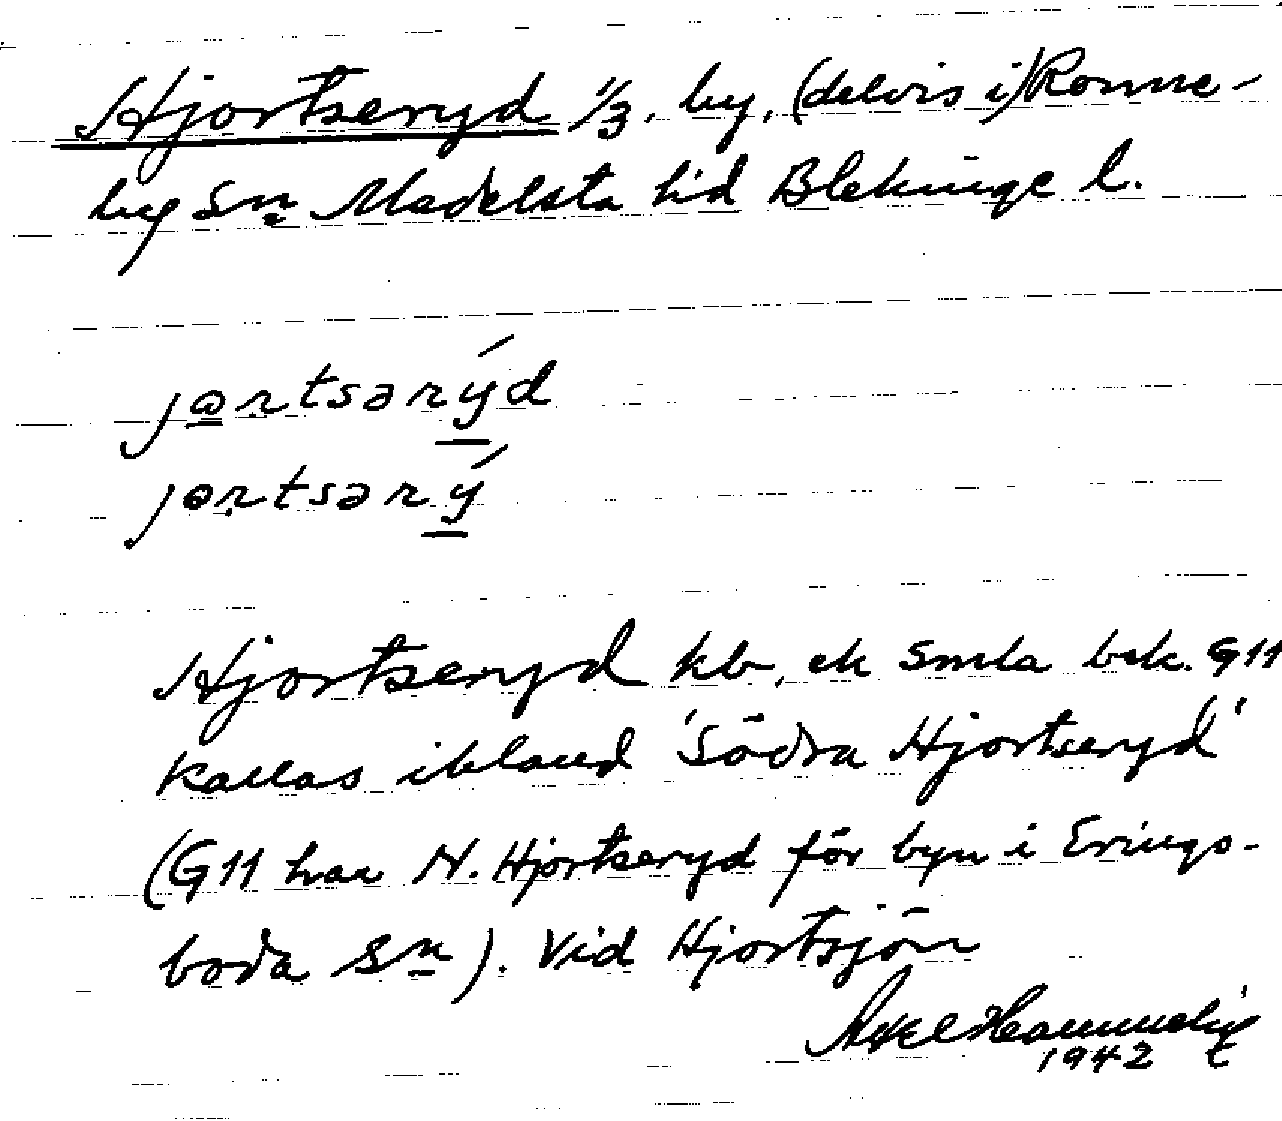 Hjortseryd 1/3. by, (delvis i) Ronne-
by Sn Medelsta hd Blekinge l.
jɵrtsərýd
jɵrtsərý
Hjortseryd kb, ek Smla bok. G11
kallas ibland 'Södra Hjortseryd'
(G11 har N. Hjortseryd för byn i Erings-
boda Sn). Vid Hjortsjön
Axel
1942